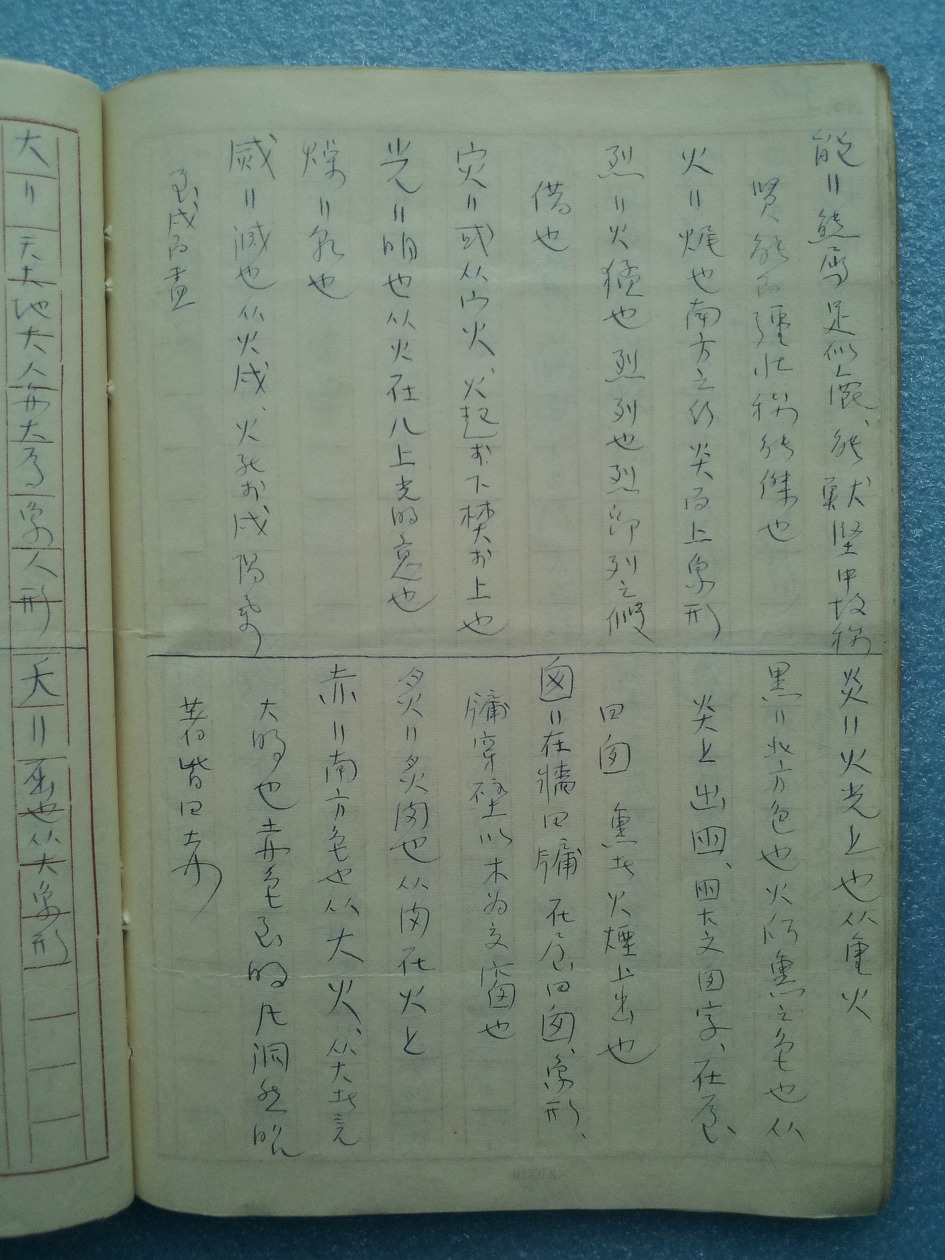 能=熊屬足似鹿、能獸堅中故稱
賢能而彊壯稱能傑也
火=燬也南方之行炎而上象形
烈=火猛也烈列也烈即列之假
借也
灾=或从宀火、火起於下焚於上也
光=明也从火在儿上光明意也
燥=乾也
烕=滅也从火戌、火死於戌陽氣
至戌而盡
炎=火光上也从重火
黑=北方色也火所熏之色也从
炎上出囪、囪古文囱字、在屋
曰囱 熏者火煙上出也
囱=在牆曰牖在屋曰囱、象形、
牖穿壁以木为交窗也
炙=炙肉也从肉在火上
赤=南方色也从大火、从大者言
大明也赤色至明凡洞然昭
著皆曰赤
大=天大地大人亦大焉象人形
夭=屈也从大象形